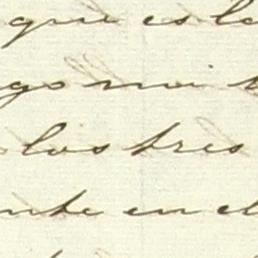 que es lo
go mi
los tres
nte en el